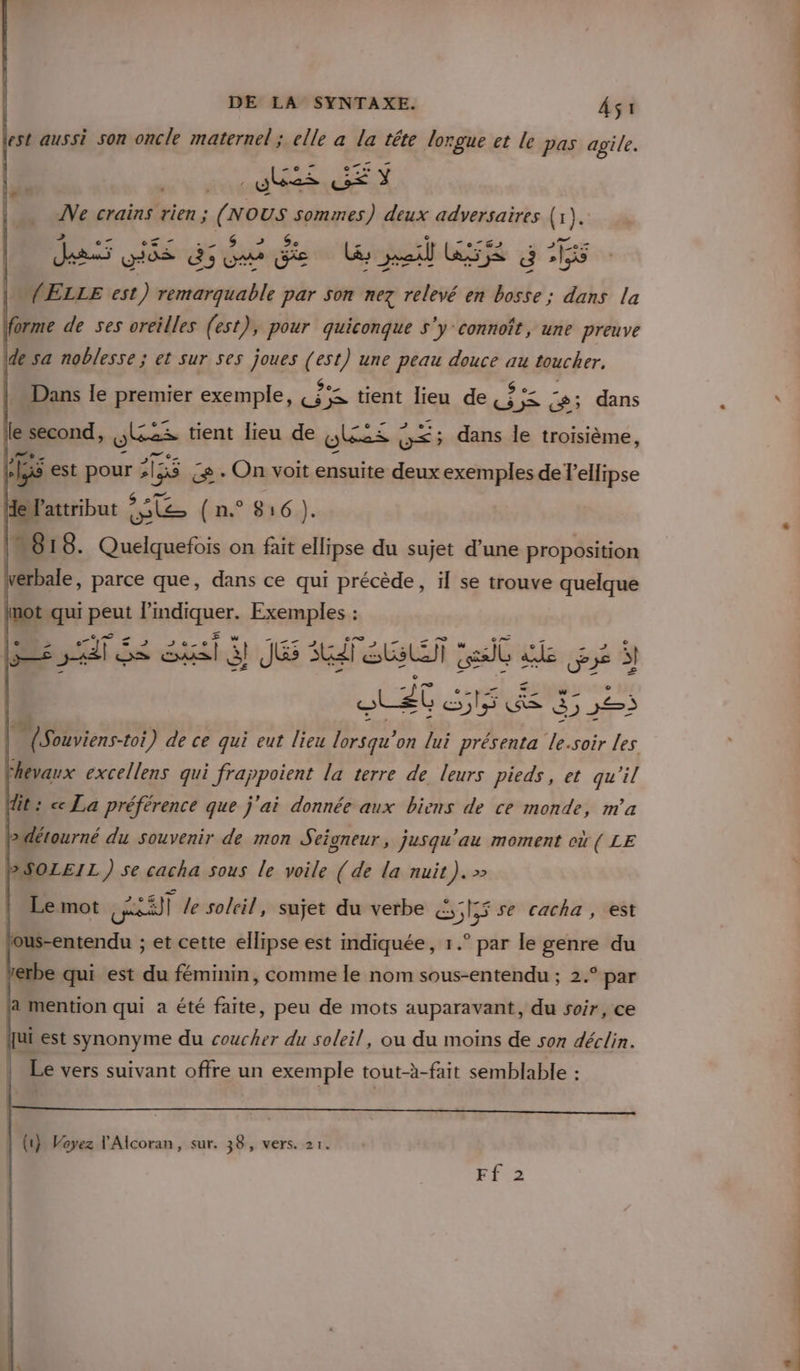 DE LA SYNTAXE. 451
est aussi son oncle maternel ; elle a la tête longue et le pas agile.
لَا تَخَفْ خَصْمَانِ
Ne crains rien ; (NOUS sommes) deux adversaires (1).
قَنْوَآءُ فِى حُرَّتَيْهَا لِلْبَصِيرِ بِهَا عِتْقٌ مُبِينٌ وَفِى خَدَّيْنِ تَسْهِيلُ
(ELLE est) remarquable par son nez relevé en bosse ; dans la
forme de ses oreilles (est), pour quiconque s'y connoît, une preuve
de sa noblesse ; et sur ses joues (est) une peau douce au toucher.
Dans le premier exemple, حَرْفٌ tient lieu de هِىَ حَرْفٌ ; dans
le second, خَصْمَانِ tient lieu de نَحْنُ خَصْمَانِ ; dans le troisième,
قَنْوَآءُ est pour هِىَ قَنْوَآءُ. On voit ensuite deux exemples de l'ellipse
de l'attribut كَائِنٌ (n.° 816).
818. Quelquefois on fait ellipse du sujet d'une proposition
verbale, parce que, dans ce qui précède, il se trouve quelque
mot qui peut l'indiquer. Exemples :
إِذْ عُرِضَ عَلَيْهِ بِالْعَشِىِّ الصَّافِنَاتُ الْجِيَادُ فَقَالَ إِنِّى أَحْبَبْتُ حُبَّ الْخَيْرِ عَنْ
ذِكْرِ رَبِّى حَتَّى تَوَارَتْ بِالْحِجَابِ
(Souviens-toi) de ce qui eut lieu lorsqu'on lui présenta le soir les
chevaux excellens qui frappoient la terre de leurs pieds, et qu'il
dit : « La préférence que j'ai donnée aux biens de ce monde, m'a
» détourné du souvenir de mon Seigneur, jusqu'au moment où ( LE
» SOLEIL ) se cacha sous le voile ( de la nuit). »
Le mot الشَّمْسُ le soleil, sujet du verbe تَوَارَتْ se cacha, est
sous-entendu ; et cette ellipse est indiquée, 1.° par le genre du
verbe qui est du féminin, comme le nom sous-entendu ; 2.° par
la mention qui a été faite, peu de mots auparavant, du soir, ce
qui est synonyme du coucher du soleil, ou du moins de son déclin.
Le vers suivant offre un exemple tout-à-fait semblable :
(1) Voyez l'Alcoran, sur. 38, vers. 21.
Ff 2